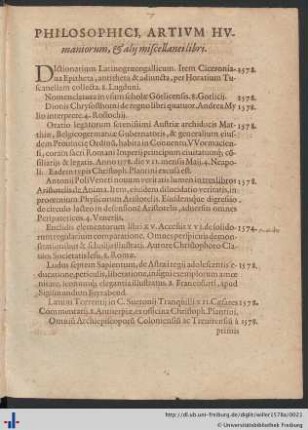 PHILOSOPHICI, ARTIVM HV-
maniorum, & alij miscellanei libri.
DIctionarium Latinogræcogallicum. Item Ciceronia- 1578.
na Epitheta, antitheta & adiuncta, per Horatium Tu-
scanellam collecta. 8. Lugduni.
Nomenclatura in usum scholæ Görlicensis. 8. Gorlicii. 1578.
Dionis Chrysostomi de regno libri quatuor, Andrea My 1578.
lio interprete. 4. Rostochij.
Oratio legatorum serenissimi Austriæ archiducis Mat- 1578.
thiæ, Belgicogermaniæ Gubernatoris, & generalium eiusdem
Provinciæ Ordinũ, habita in Conventu VVormacien-
si, coram sacri Romani Imperij principum civitatumq; cõ-
siliarijs & legatis. Anno 1578. die VII. mensis Maij. 4. Neapoli.
Eadem typis Christoph. Plantini excusa est.
Antonij Poli Veneti novum veritatis lumen in tres libros 1578.
Aristotelis de Anima. Item, eiusdem dilucidatio veritatis, in
prooemium Physicorum Aristotelis. Eiusdemque digressio
de circulo lacteo in defensionẽ Aristotelis, adversus omnes
Peripateticos. 4. Venetijs.
Euclidis elementorum libri XV. Accessit XVI. de solido- 1574.
rum regularium comparatione. Omnes perspicuis demon-
strationibus & scholijs illustrati. Autore Christophoro Cla-
vio Societatis Iesu. 8. Romæ.
Ludus septem Sapientum, de Astræi regij adolescentis e- 1578.
ducatione, periculis, liberatione, insigni exemplorum amœ-
nitate, iconumq; elegantia illustratus. 8. Francofurti, apud
Sigismundum Feyrabend.
Lævini Torrentij in C. Suetonij Tranquilli XII. Cæsares 1578.
Commentarij. 8. Antuerpiæ, ex officina Christoph. Plantini.
Omniũ Archiepiscoporũ Coloniensiũ ac Treuirensiũ à 1578.
primis
http://dl.ub.uni-freiburg.de/diglit/willer1578a/0021
© Universitätsbibliothek Freiburg